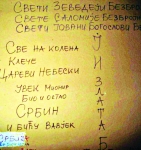 Свете Зеведеји Безброј
Свете Саломије Безброј
Свети Јовани Богослови Бе
Све на колена
Клече
Цареви Небески
Увек Мислир
Био и остао
Србин
И бићу вавјек
У
И
З
Л
А
Т
А
Б